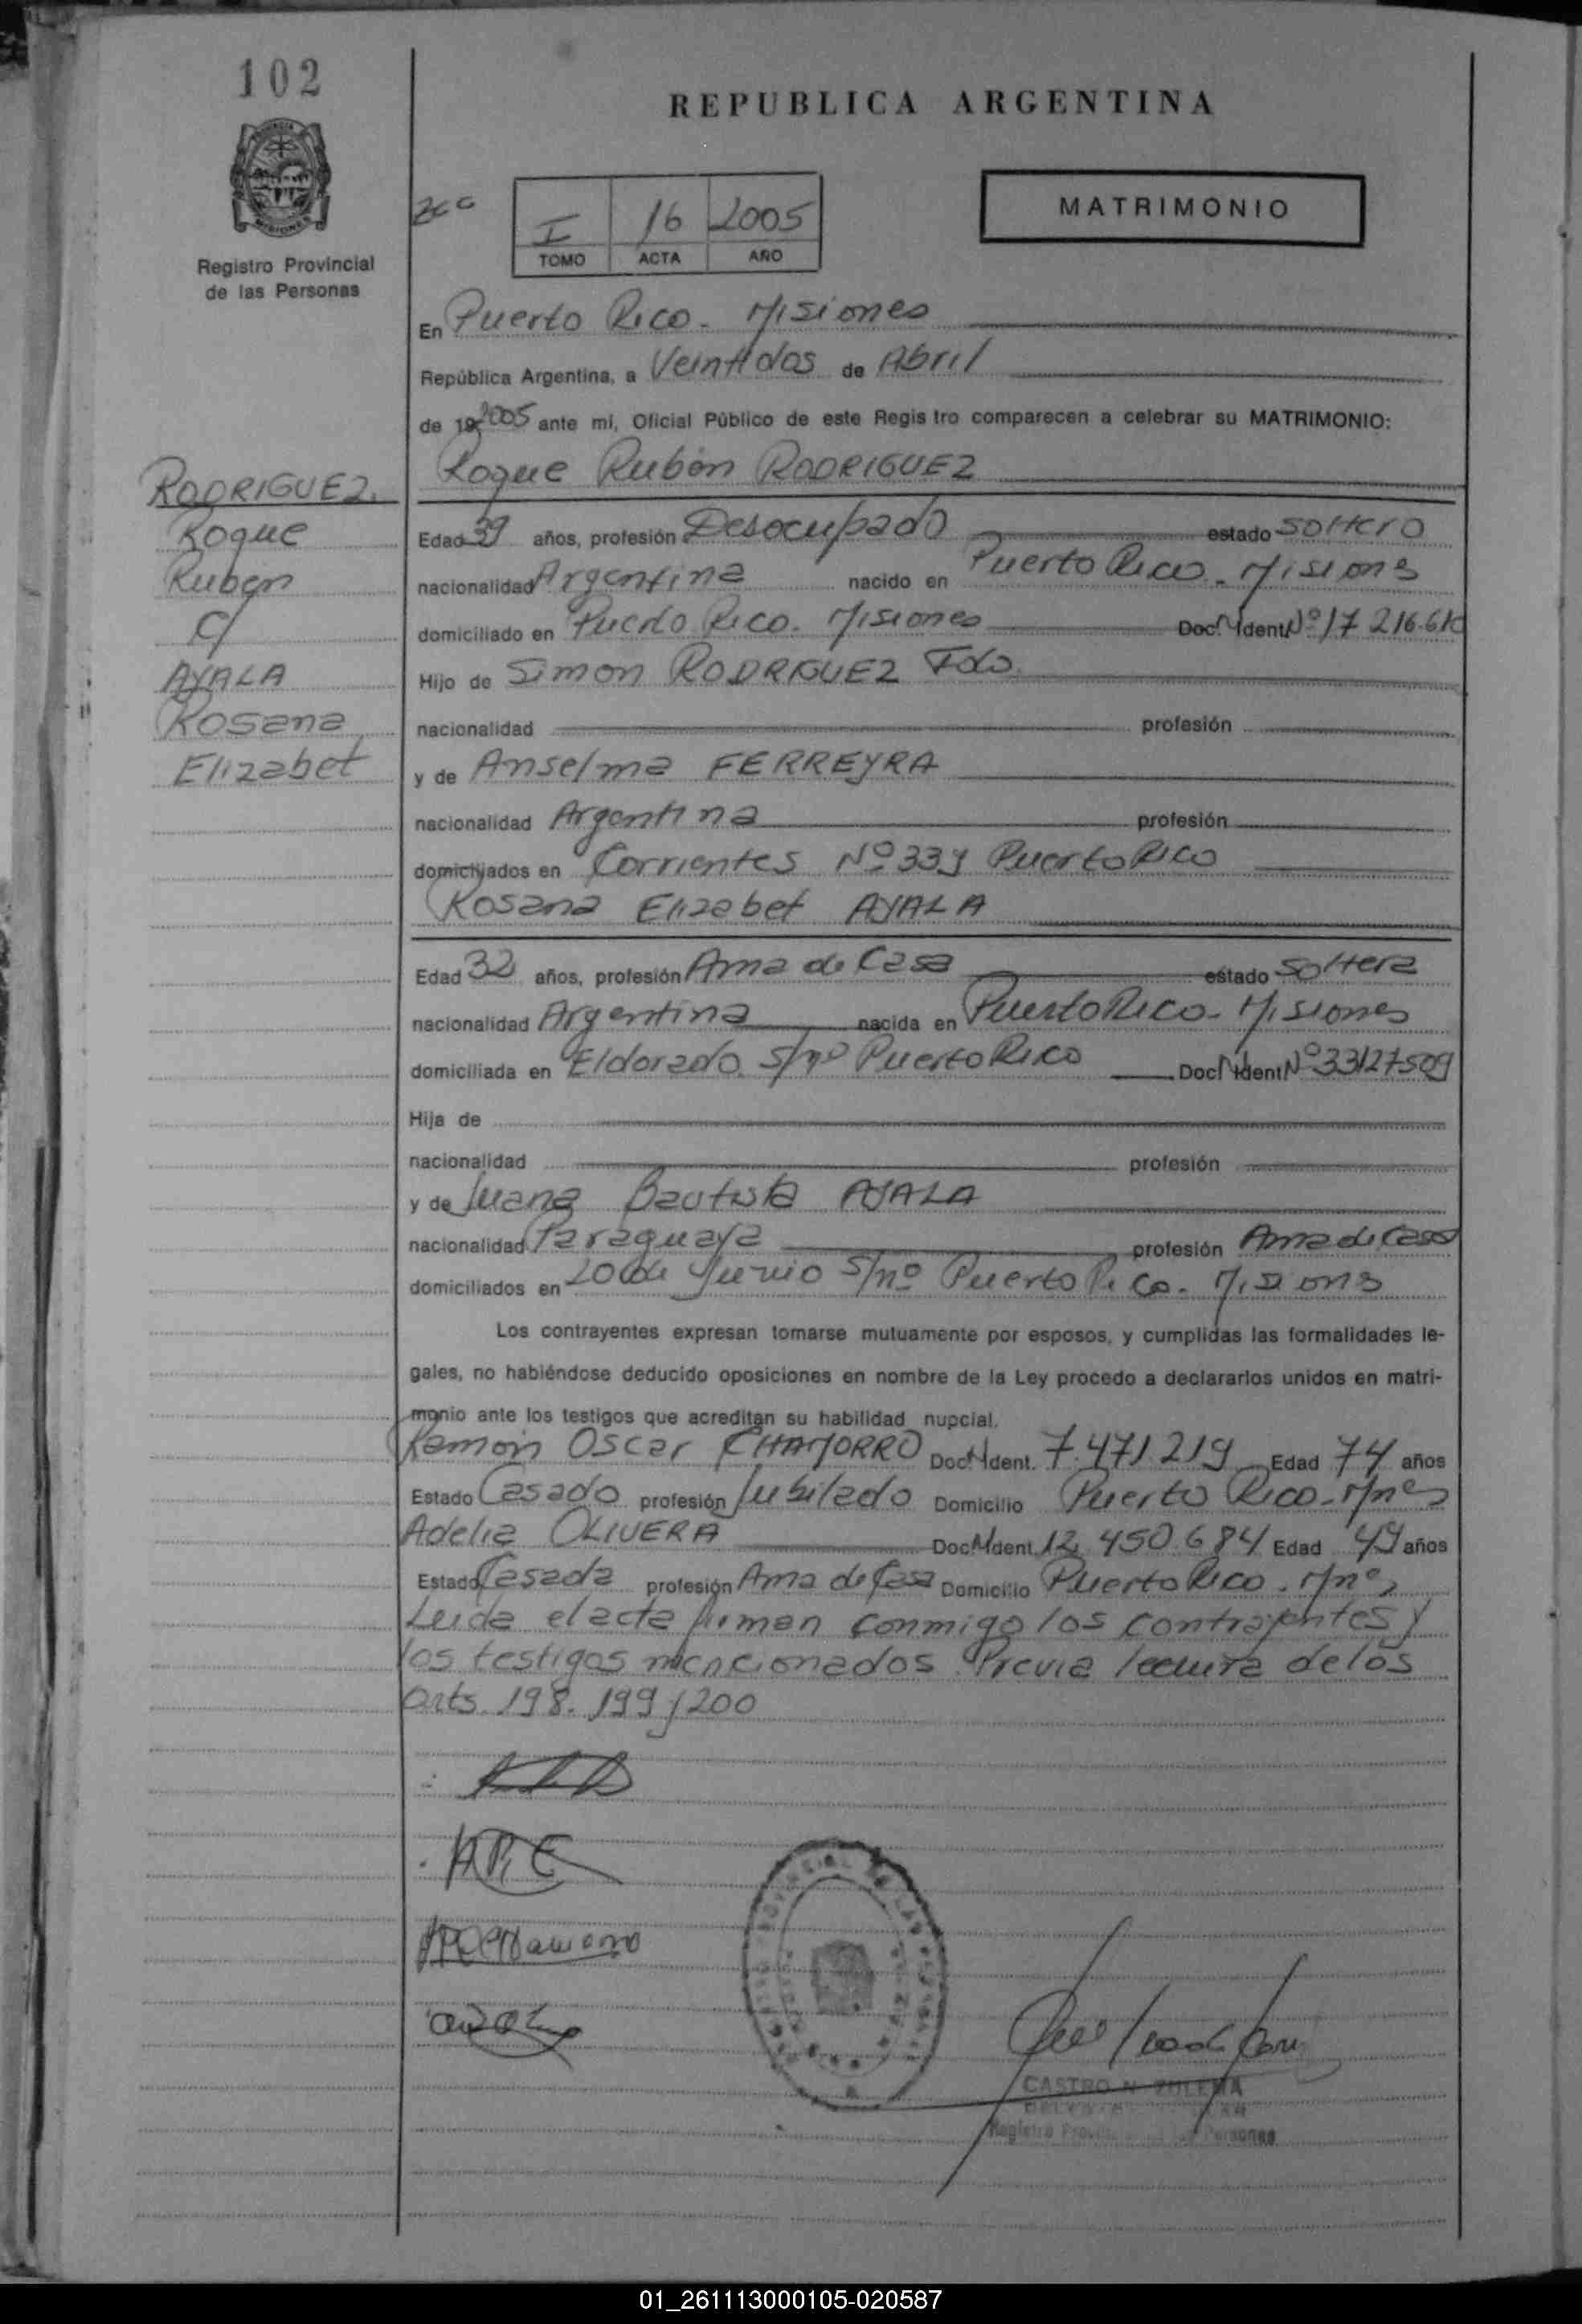 102
REPUBLICA ARGENTINA
I 16 2005
TOMO ACTA AÑO
MATRIMONIO
Registro Provincial
de las Personas
En Puerto Rico - Misiones
República Argentina, a Veintidos de Abril
de 19 2005 ante mi, Oficial Público de este Regis tro comparecen a celebrar su MATRIMONIO:
Roque Rubén RODRIGUEZ
RODRIGUEZ
Roque
Ruben
C/
AYALA
Rosana
Elizabet
Edad 39 años, profesión Desocupado estado soltero
nacionalidad Argentina nacido en Puerto Rico - Misiones
domiciliado en Puerto Rico - Misiones Doc. N Ident. Nº 17 216.610
Hijo de Simon RODRIGUEZ Fdo.
nacionalidad profesión
y de Anselma FERREYRA
nacionalidad Argentina profesión
domiciliados en Corrientes Nº 339 Puerto Rico
Rosana Elizabet AYALA
Edad 32 años, profesión Ama de Casa estado soltera
nacionalidad Argentina nacida en Puerto Rico - Misiones
domiciliada en Eldorado s/nº Puerto Rico Doc. N Ident. Nº 33127509
Hija de
nacionalidad profesión
y de Juana Bautista AYALA
nacionalidad Paraguaya profesión Ama de Casa
domiciliados en 20 de Junio s/nº Puerto Rico - Misiones
Los contrayentes expresan tomarse mutuamente por esposos, y cumplidas las formalidades le-
gales, no habiéndose deducido oposiciones en nombre de la Ley procedo a declararlos unidos en matri-
monio ante los testigos que acreditan su habilidad nupcial.
Ramón Oscar CHAMORRO Doc. N Ident. 7.471.219 Edad 74 años
Estado Casado profesión Jubilado Domicilio Puerto Rico - Mnes
Adelia OLIVERA Doc. N Ident. 12.450.684 Edad 49 años
Estado Casada profesión Ama de Casa Domicilio Puerto Rico - Mnes
Leida el acta firman conmigo los contrayentes y
los testigos mencionados Previa lectura de los
arts. 198. 199 y 200
CASTRO N. ZULEMA
Registro Provincial de las Personas
01_261113000105-020587